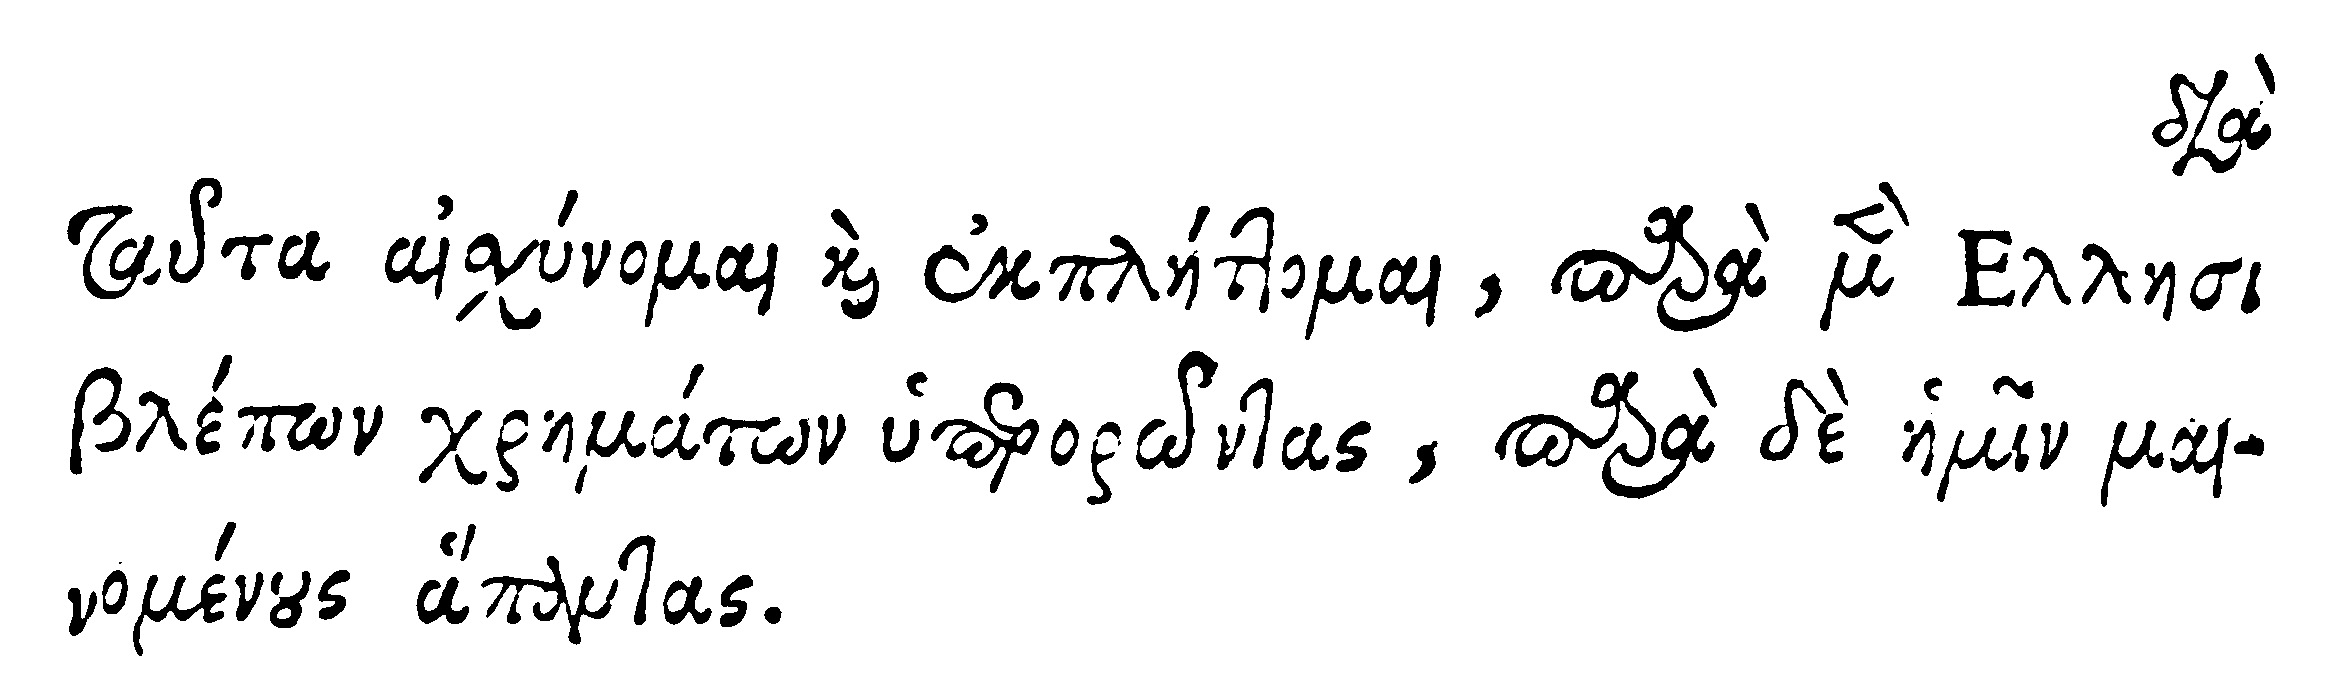 διὰ
ταῦτα αἰσχύνομαι καὶ ἐκπλήττομαι, παρὰ μὲν Ελλησι
βλέπων χρημάτων ὑπερορῶντας, παρὰ δὲ ἡμῖν μαι-
νομένους ἅπαντας.